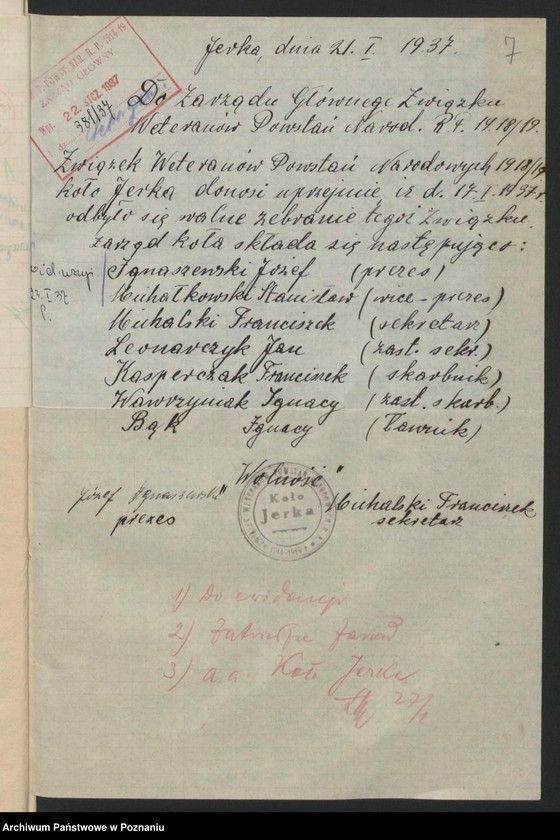 Jerka, dnia 21. I. 1937.
7
ZARZĄD GŁÓWNY
Wpł. 22 STCZ. 1937
381/37
Do Zarządu Głównego Związku
Weteranów Powstań Narod. R.P. 1918/19.
Związek Weteranów Powstań Narodowych 1918/19
koło Jerka donosi uprzejmie iż d. 17-I. 1937 r.
odbyło się walne zebranie tegoż Związku.
Zarząd koła składa się następująco:
Ignaszewski Józef (prezes)
27. I 37
Michałkowski Stanisław (wice-prezes)
Michalski Franciszek (sekretarz)
Leonarczyk Jan (zast. sekr.)
Kasperczak Franciszek (skarbnik)
Wawrzyniak Ignacy (zast. skarb.)
Bąk Ignacy (Ławnik)
"Wolność"
Józef Ignaszewski
prezes
Koło
Jerka
Michalski Franciszek
sekretarz
1) Do ewidencji
2) Zatwierdzić Zarząd
3) a a Koło Jerka
27/1
Archiwum Państwowe w Poznaniu